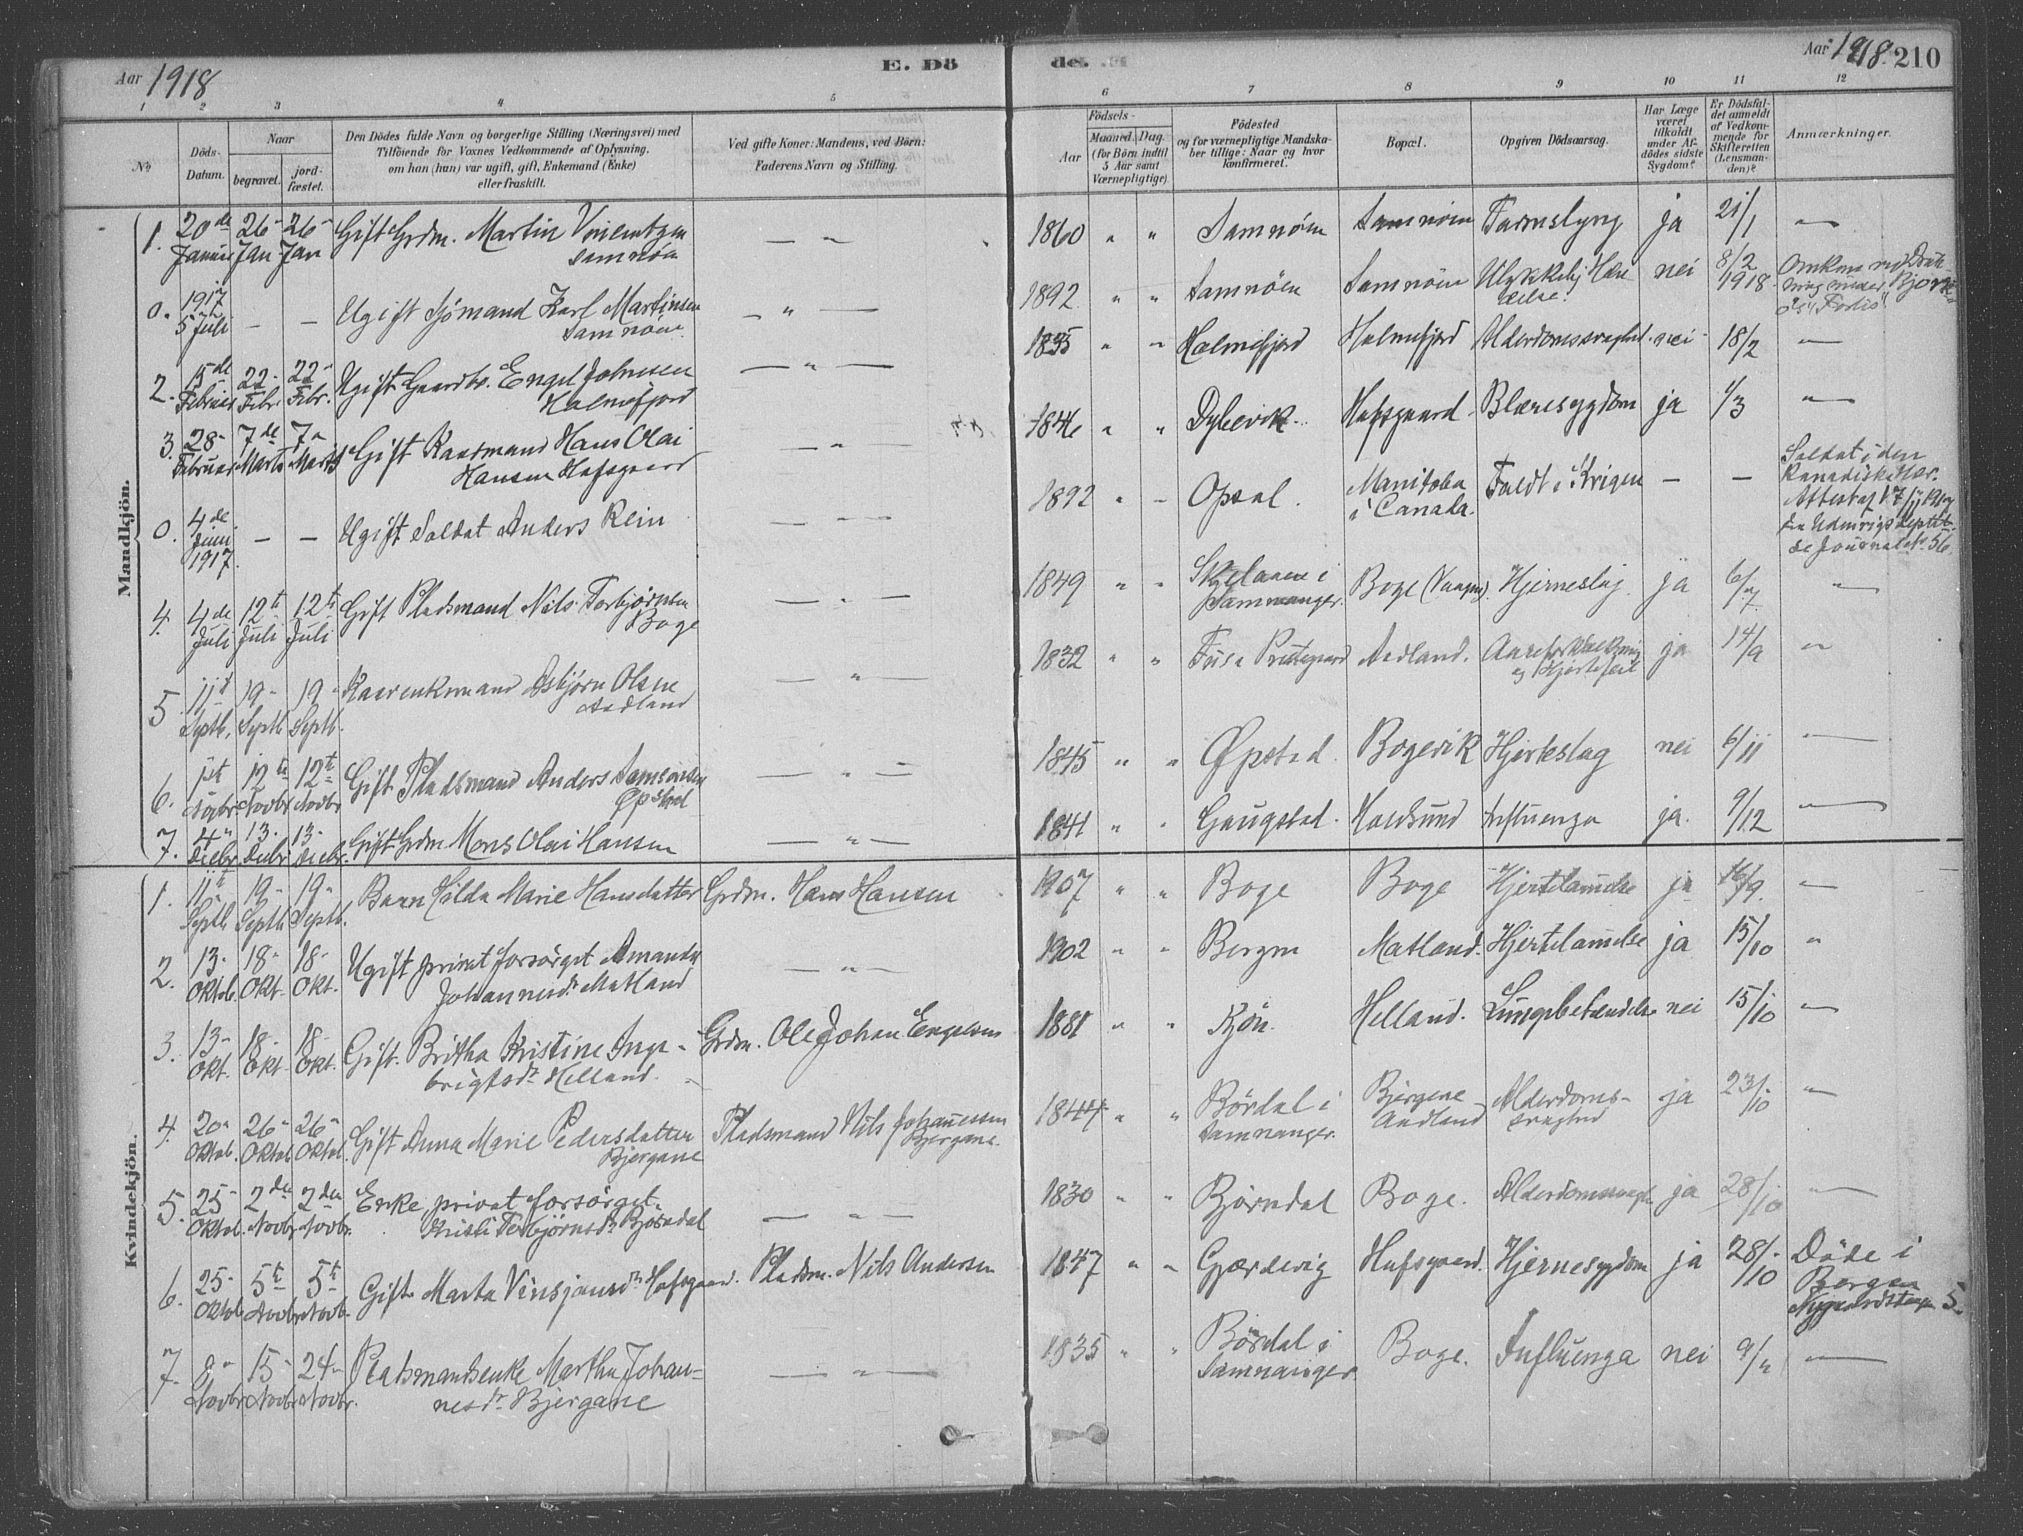 Aar 1918
E. Dö
de. E
Aar 1918. 210
1 2 3 4 5 6 7 8 9 10 11 12
No
Döds-Datum.
Naar
begravet.
jord-fæstet.
Den Dödes fulde Navn og borgerlige Stilling (Næringsvei) med
Tilföiende for Voxnes Vedkommende af Oplysning,
om han (hun) var ugift, gift, Enkemand (Enke)
eller fraskilt.
Ved gifte Koner: Mandens, ved Börn:
Faderens Navn og Stilling.
Födsels-
Aar
Maaned. Dag.
(for Börn indtil
5 Aar samt
Værnepligtige)
Födested
og for værnepligtige Mandska-
ber tillige: Naar og hvor
konfirmeret.
Bopæl.
Opgiven Dödsaarsag.
Har Læge
været
tilkaldt
under Af-
dödes sidste
Sygdom?
Er Dödsfal-
det anmeldt
af Vedkom-
mende for
Skifteretten
(Lensman-
den)?
Anmærkninger.
Mandkjön.
1. 20de Januar 26- Jan 26- Jan Gift Grdm. Martin Samnöen — " — 1860 " " Samnöen Samnöen Tarmslyng ja 21/1 "
0. 1917 5 Juli — — Ugift Sjömand Karl Martinsen Samnöen — " — 1892 " " Samnöen Samnöen nei 8/2 1918.
2. 15de Februar 22- Febr. 22- Febr. Ugift Gaardbr. Engel Johnsen Holmefjord — " — 1835 " " Holmefjord Holmefjord Alderdomssvaghed nei 18/2 —
3. 28- Februar 7de Marts 7" Marts Gift Kaarmand Hans Olai Hansen Hafsgaard — " — 1846 " " Dybevik. Hafsgaard Blæresygdom ja 1/3 —
0. 4de Juni 1917. — — Ugift Soldat Anders Rein — — — 1892 " — Opsal. Manitoba i Canada. Faldt i Krigen — — Soldat i den Kanadiske Hær.
4. 4de Juli 12te Juli 12te Juli Gift Pladsmand Nils Torbjörnsen Boge — " — 1849 " " i Samnanger. Boge Hjerneslag. ja 6/7 "
5. 11te Septb. 19- Septb 19- Septb. Kaarenkemand Asbjörn Olsen Aadland — " — 1832 " " Fusa Prestegaard Aadland. og Hjertefeil ja 14/9 "
6. 1st Novbr 12te Novbr 12te Novbr Gift Pladsmand Anders Samsonsen Øpstad — " — 1845 " " Øpsted Bogevik Hjerteslag nei 6/11 —
7. 4" Decbr 13- Decbr 13- Decbr. Gift Grdm Mons Olai Hansen — " — 1841 " " Gaugstad. Holdsund Influenza ja. 9/12 —
Kvindekjön.
1. 11te Septb 19- Septb 19- Septb. Barn Hilda Marie Hansdatter Grdm. Hans Hansen 1907 " " Boge Boge Hjertelammelse ja 16/9. —
2. 13- Oktob. 18- Okt. 18- Okt. Ugift privat forsörget Amanda Johannesdr Matland — " — 1902 " " Bergen Matland. Hjertelammelse ja 15/10 "
3. 13- Okt. 18- Okt. 18- Okt. Gift. Britha Kristine Inge-brigtsdr Helland. Grdm. Ole Johan Engelsen 1881 " " Kjön. Helland. Lungebetændelse nei 15/10 —
4. 20" Oktob. 26- Oktob 26- Oktob. Gift Anna Marie Pedersdatter Bjergane Pladsmand Nils Johannessen Bjergane. 1844 " " Bördal i Samnanger. Bjergene Aadland Alderdoms-svaghed ja 23/10 "
5. 25- Oktob. 2den Novbr 2den Novbr. Enke, privat forsörget. Kristi Torbjörnsdr Björndal — " — 1830 " " Björndal Boge. Alderdomssvaghed ja 28/10 —
6. 25- Oktob 5te Novbr 5te Novbr. Gift Marta Vinsjansdr Hafsgaard. Pladsm. Nils Andersen 1847 " " Gjærdevig Hafsgaard. Hjernesygdom ja 28/10 Döde i Bergen
7. 8" Novbr 15- Novbr 24- Novbr. Pladsmandsenke Martha Johan-nesdr Bjergane — " — 1835 " " Bördal i Samnanger Boge. Influenza nei 9/11 —